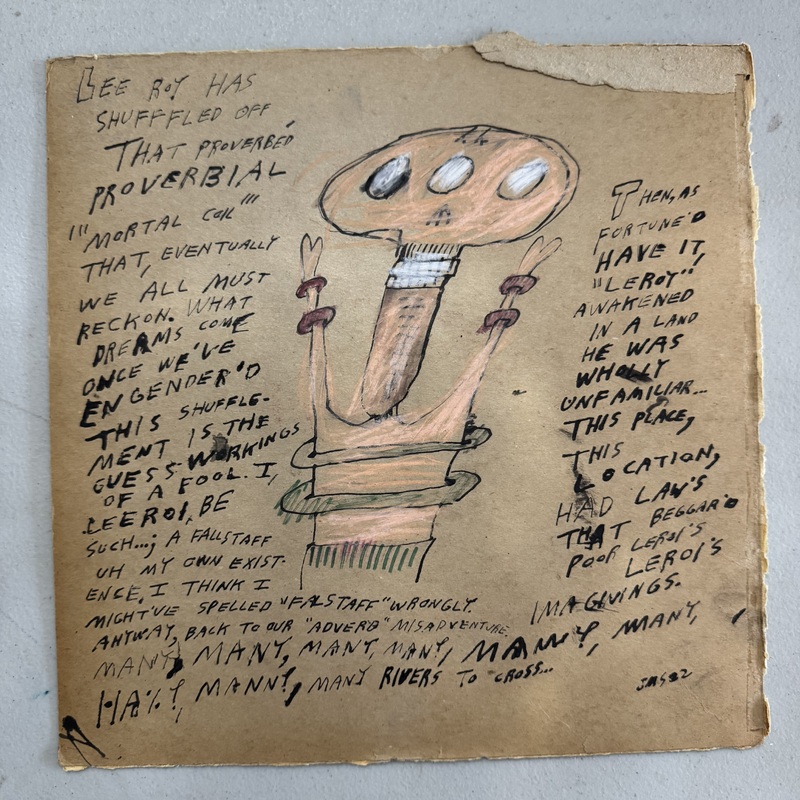 LEE ROY HAS
SHUFFFLED OFF
THAT PROVERBED
PROVERBIAL
"'MORTAL COIL'"
THAT, EVENTUALLY
WE ALL MUST
RECKON. WHAT
DREAMS COME
ONCE WE'VE
ENGENDER'D
THIS SHUFFLE-
MENT IS THE
GUESS-WORKINGS
OF A FOOL. I,
LEEROI, BE
SUCH...; A FALLSTAFF
UH MY OWN EXIST-
ENCE, I THINK I
MIGHT'VE SPELLED "FALSTAFF" WRONGLY.
ANYWAY, BACK TO OUR "ADVERB" MISADVENTURE.
MANY, MANY, MANY, MANY, MANY, MANY,
MANNY, MANY RIVERS TO CROSS...
THEN, AS
FORTUNE'D
HAVE IT,
"LEROY",
AWAKENED
IN A LAND
HE WAS
WHOLLY
UNFAMILIAR...
THIS PLACE,
THIS
LOCATION,
HAD LAW'S
THAT BEGGAR'D
POOR LEROI'S
LEROI'S
IMAGIVINGS.